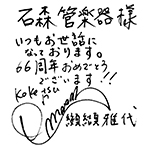 石森管楽器様
いつもお世話に
なっております。
66周年おめでとう
ございます!!
纐纈雅代